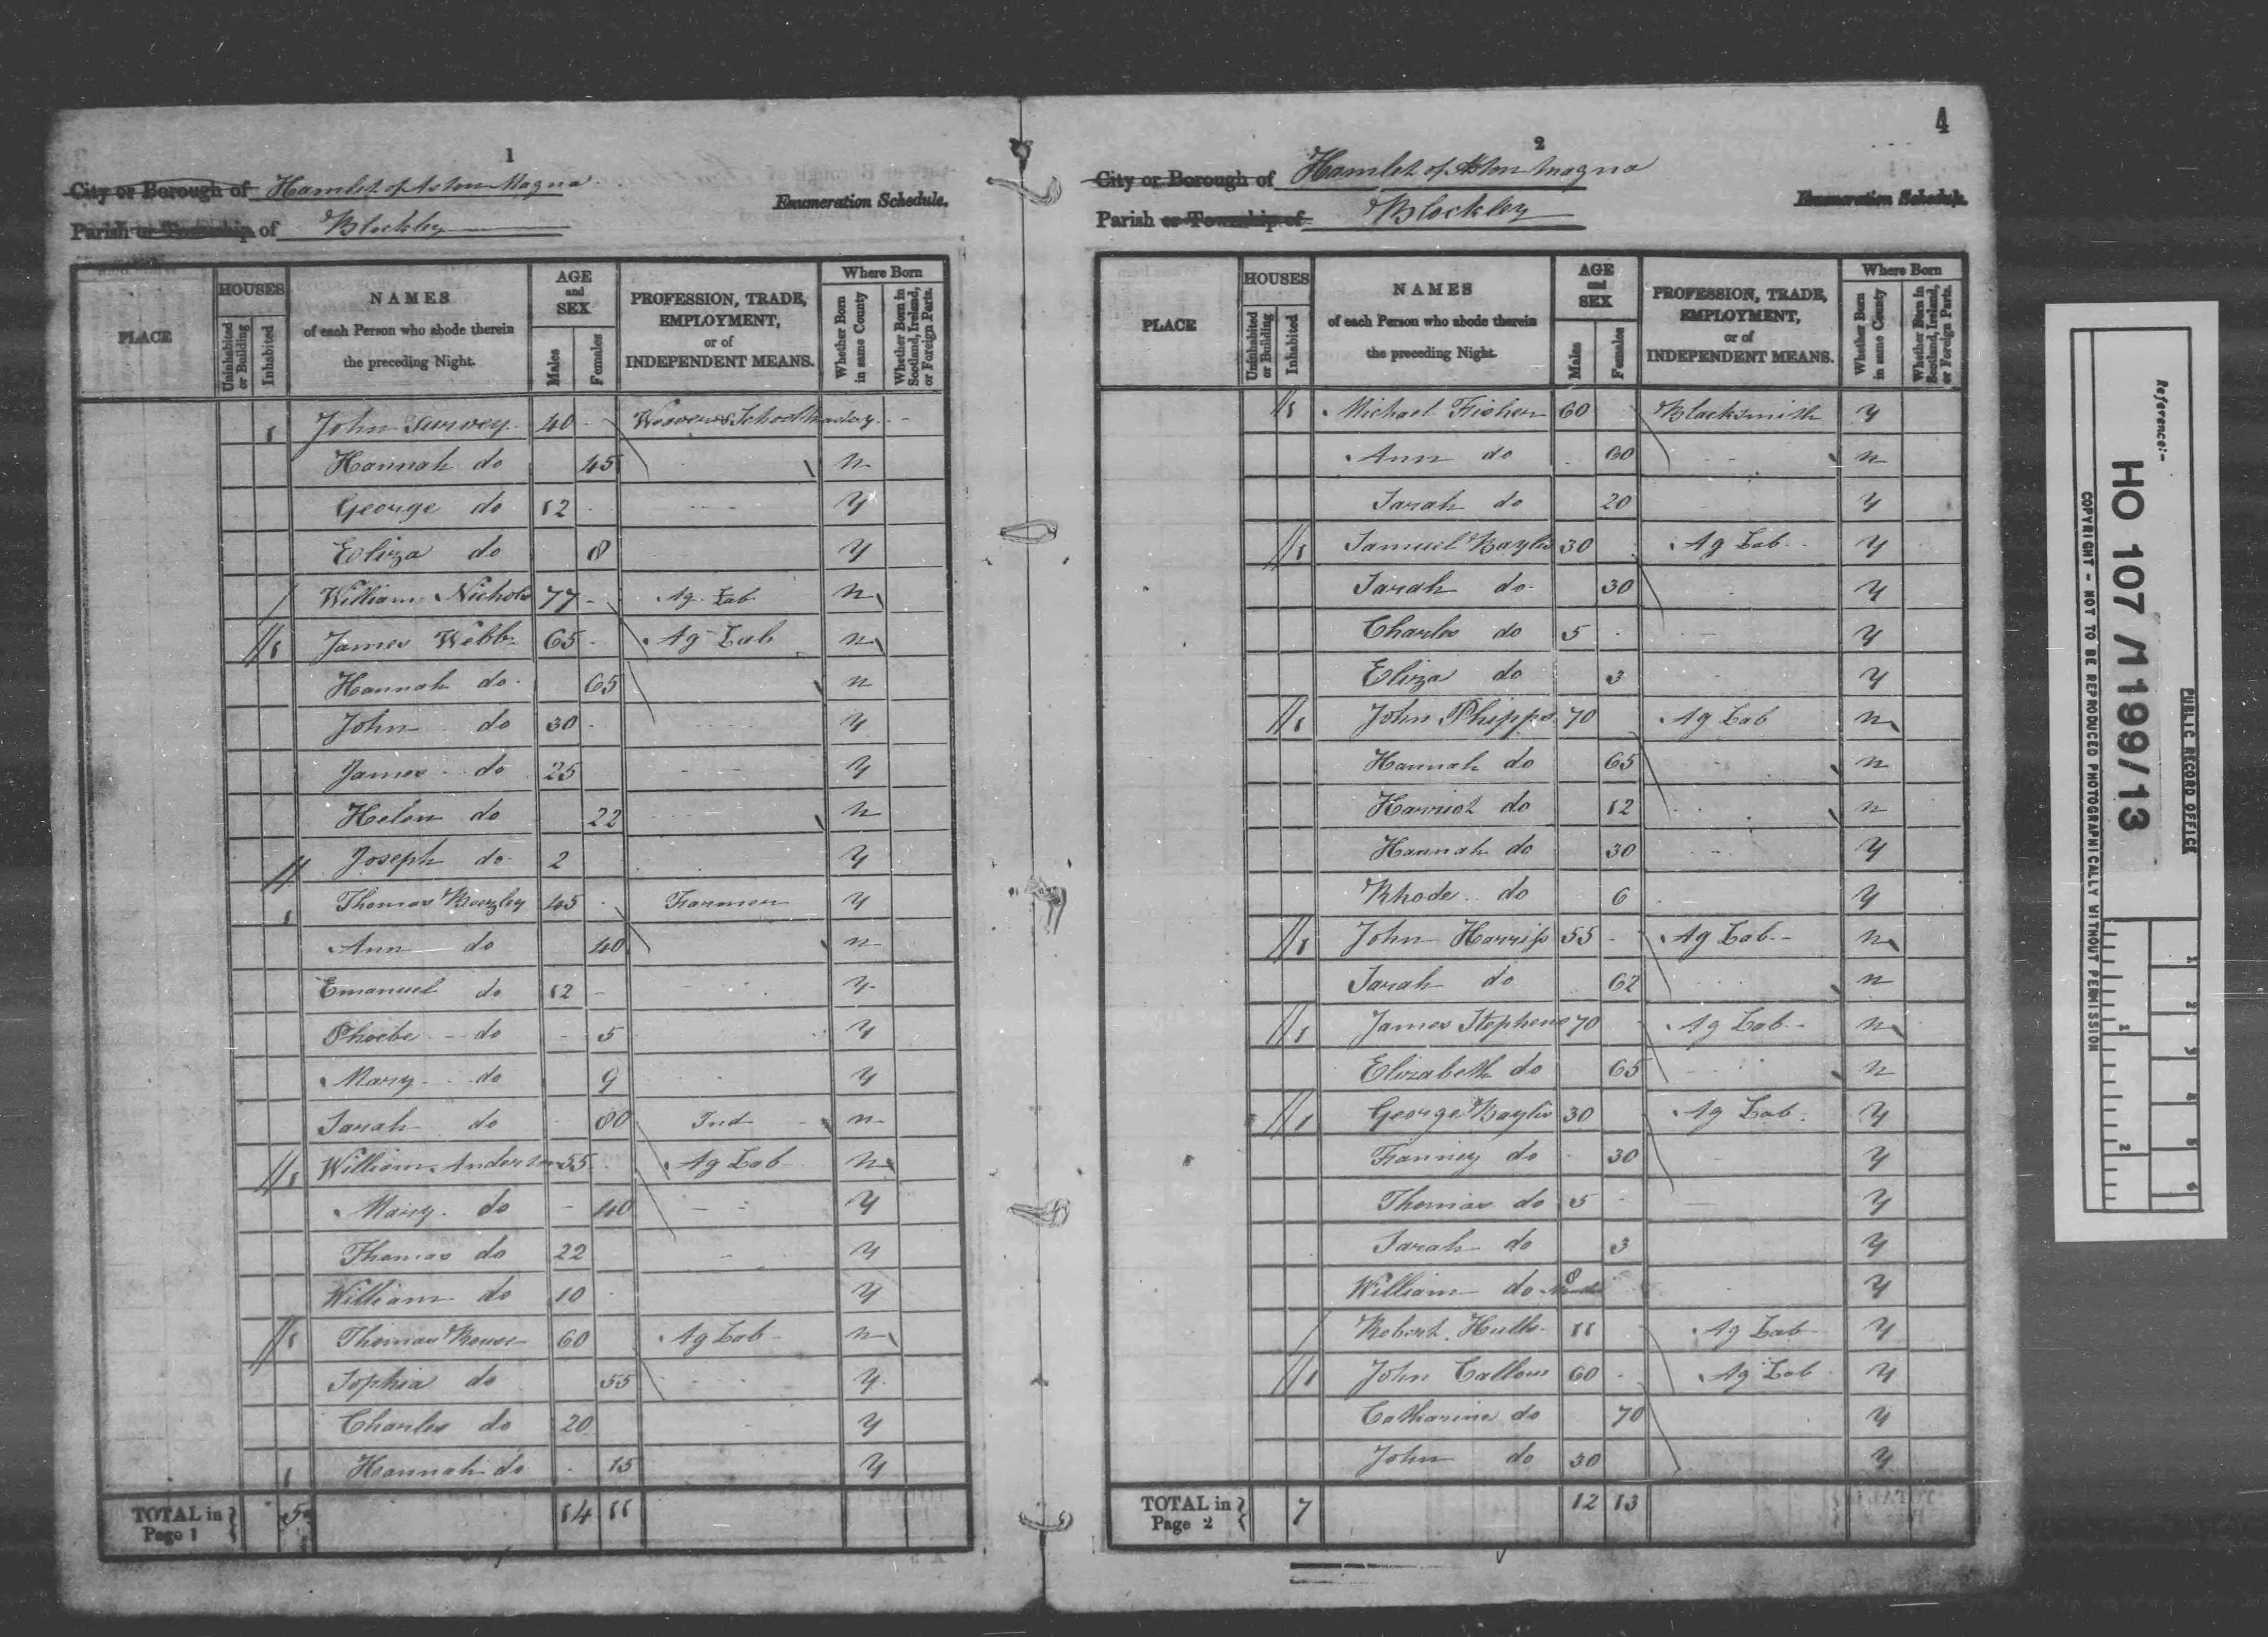 1
City or Borough of Hamlet of Aston Magna
Enumeration Schedule.
Parish or Township of Blockley
PLACE
HOUSES
Uninhabited or Building
Inhabited
NAMES
of each Person who abode therein
the preceding Night.
AGE
and
SEX
Males
Females
PROFESSION, TRADE,
EMPLOYMENT,
or of
INDEPENDENT MEANS.
Where Born
Whether Born in same County
Whether Born in Scotland, Ireland, or Foreign Parts.
1 John 40
Hannah do 45 n
George do 12 y
Eliza do 8 y
William Nichols 77 Ag Lab n
1 James Webb 65 Ag Lab n
Hannah do 65 n
John do 30 y
James do 25 y
Helen do 22 n
Joseph do 2 y
1 Thomas 45 Farmer y
Ann do 40 n
Emanuel do 12 y
Phoebe do 5 y
Mary do 9 y
Sarah do 80 Ind n
1 William Anderson 55 Ag Lab n
Mary do 40 y
Thomas do 22 y
William do 10 y
1 Thomas Rouse 60 Ag Lab n
Sophia do 55 y
Charles do 20 y
Hannah do 15 y
TOTAL in Page 1 5 14 11
4
2
City or Borough of Hamlet of Aston Magna
Enumeration Schedule.
Parish or Township of Blockley
PLACE
HOUSES
Uninhabited or Building
Inhabited
NAMES
of each Person who abode therein
the preceding Night.
AGE
and
SEX
Males
Females
PROFESSION, TRADE,
EMPLOYMENT,
or of
INDEPENDENT MEANS.
Where Born
Whether Born in same County
Whether Born in Scotland, Ireland, or Foreign Parts.
1 Michael Fisher 60 Blacksmith y
Ann do 60 n
Sarah do 20 y
1 Samuel Baylis 30 Ag Lab y
Sarah do 30 y
Charles do 5 y
Eliza do 3 y
1 John Phipps 70 Ag Lab n
Hannah do 65 n
Harriot do 12 n
Hannah do 30 y
Rhode do 6 y
1 John Harriss 55 Ag Lab n
Sarah do 62 n
1 James Stephens 70 Ag Lab n
Elizabeth do 65 n
1 George Baylis 30 Ag Lab y
Franney do 30 y
Thomas do 5 y
Sarah do 3 y
William do 8 Months y
Robert Hulls 11 Ag Lab y
1 John Callow 60 Ag Lab y
Catharine do 70 y
John do 30 y
TOTAL in Page 2 7 12 13
PUBLIC RECORD OFFICE
Reference:-
HO 107/1199/13
COPYRIGHT - NOT TO BE REPRODUCED PHOTOGRAPHICALLY WITHOUT PERMISSION
1 2 3 4 5 6
1 2